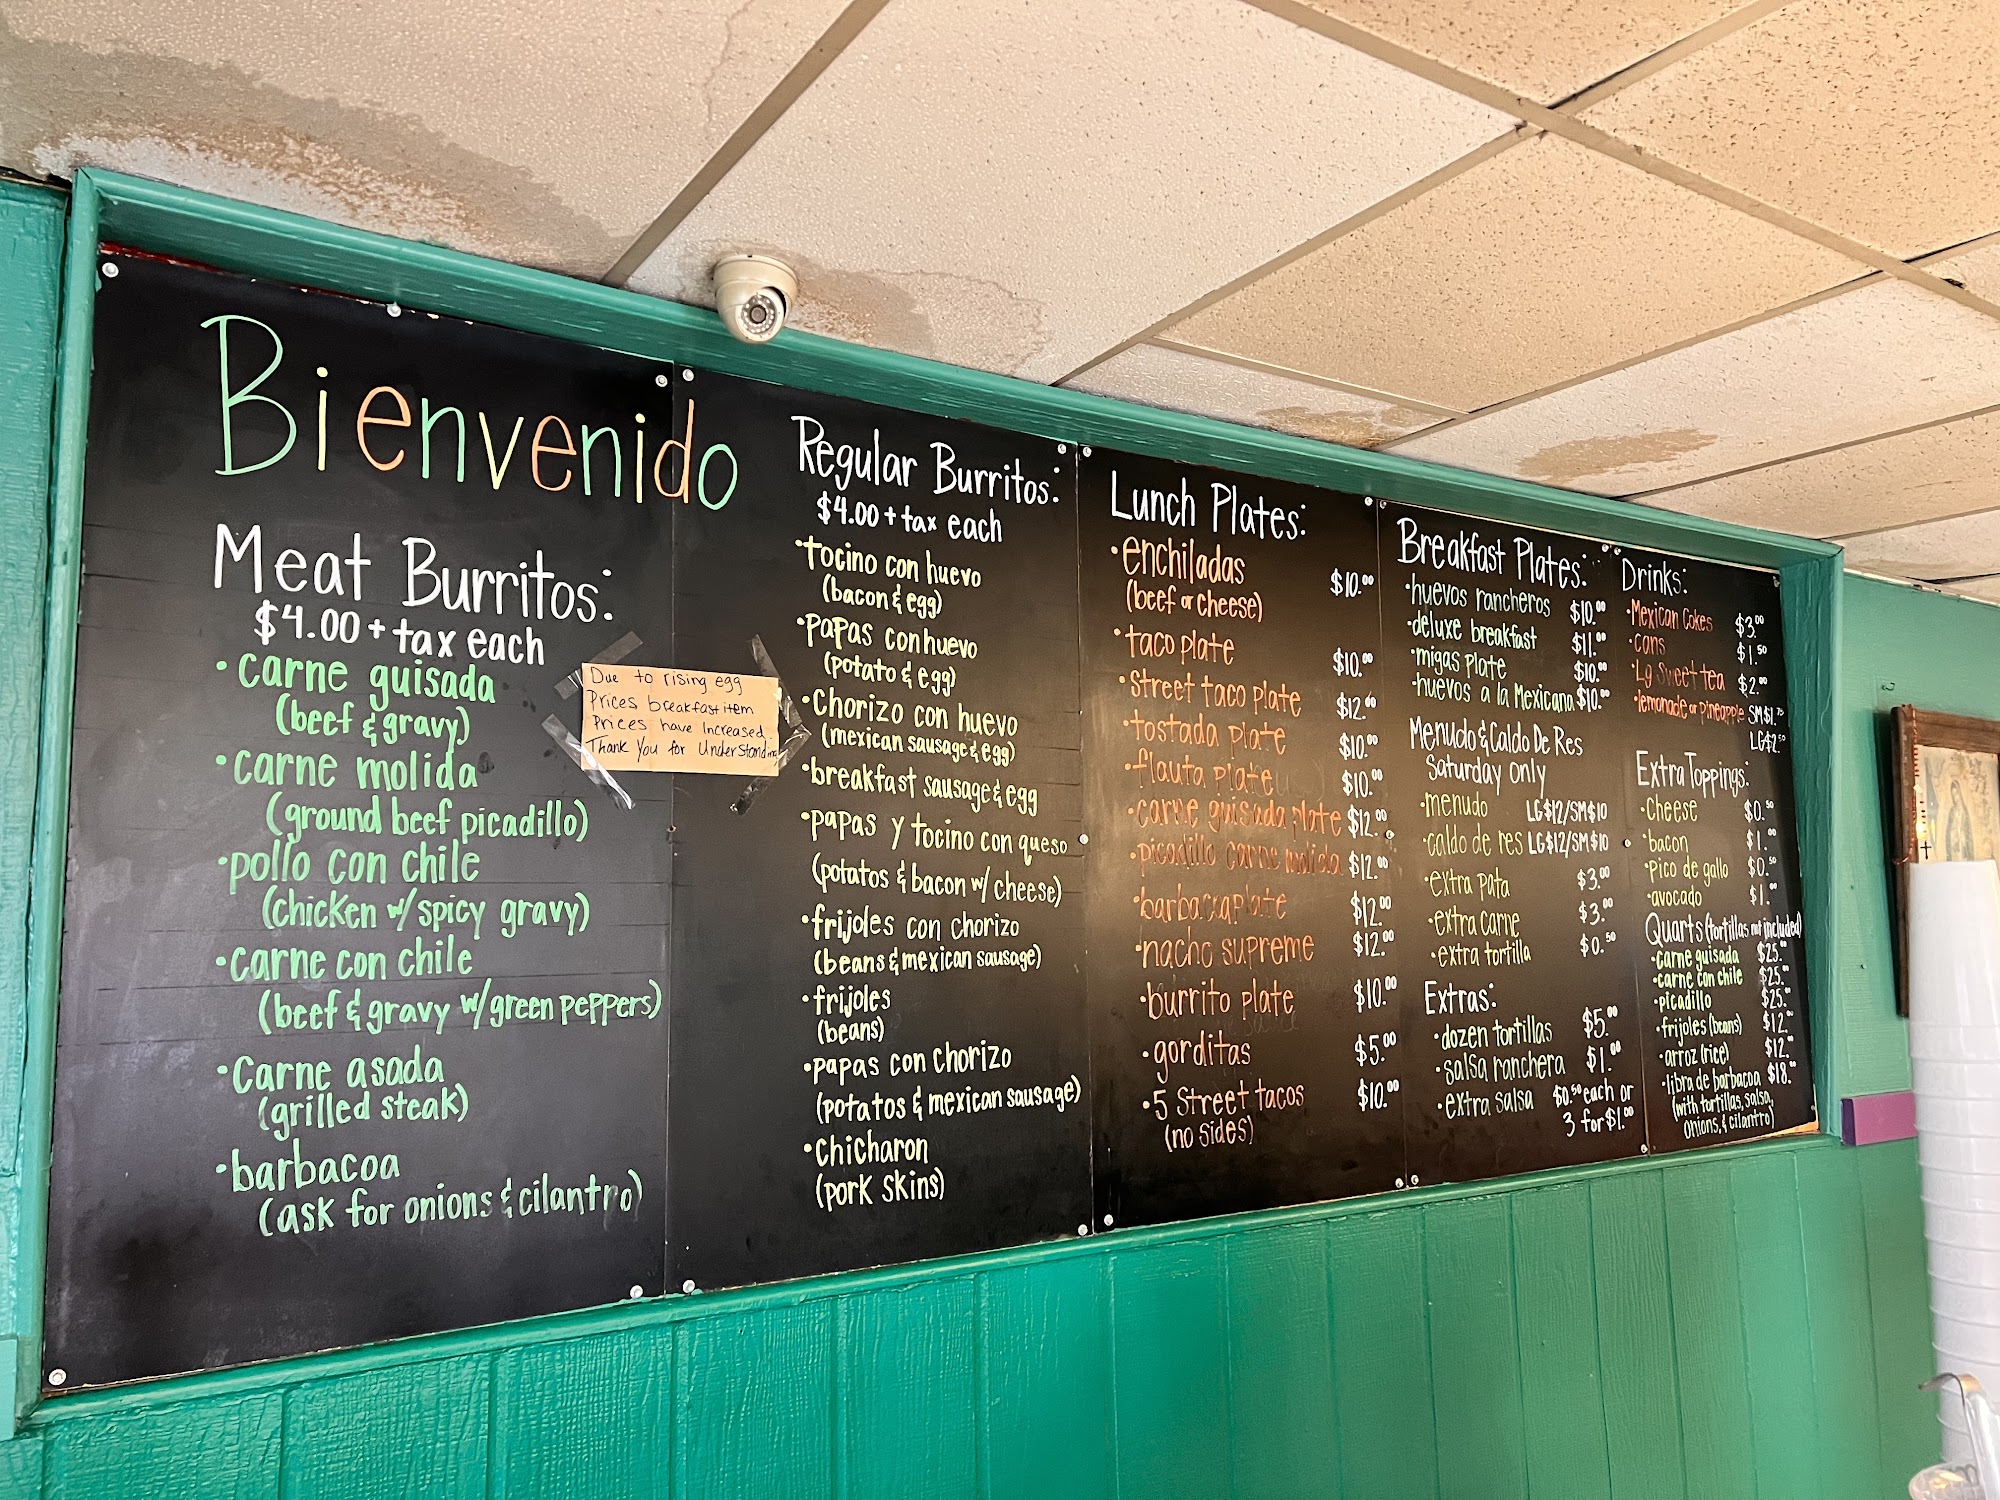 Bienvenido
Meat Burritos:
$4.00 + tax each
• carne guisada
(beef & gravy)
• carne molida
(ground beef picadillo)
• pollo con chile
(chicken w/ spicy gravy)
• carne con chile
(beef & gravy w/ green peppers)
• Carne asada
(grilled steak)
• barbacoa
(ask for onions & cilantro)
Due to rising egg
Prices breakfast item
Prices have Increased.
Thank You for Understanding
Regular Burritos:
$4.00 + tax each
• tocino con huevo
(bacon & egg)
• papas con huevo
(potato & egg)
• Chorizo con huevo
(mexican sausage & egg)
• breakfast sausage & egg
• papas y tocino con queso
(potatos & bacon w/ cheese)
• frijoles con chorizo
(beans & mexican sausage)
• frijoles
(beans)
• papas con chorizo
(potatos & mexican sausage)
• Chicharon
(pork skins)
Lunch Plates:
• enchiladas $10.00
(beef or cheese)
• taco plate $10.00
• street taco plate $12.00
• tostada plate $10.00
• flauta plate $10.00
• carne guisada plate $12.00
• picadillo carne molida $12.00
• barbacca plate $12.00
• nacho supreme $12.00
• burrito plate $10.00
• gorditas $5.00
• 5 Street tacos $10.00
(no sides)
Breakfast Plates:
• huevos rancheros $10.00
• deluxe breakfast $11.00
• migas plate $10.00
• huevos a la Mexicana $10.00
Menudo & Caldo De Res
Saturday Only
• menudo LG $12/SM $10
• caldo de res LG $12/SM $10
• extra pata $3.00
• extra carne $3.00
• extra tortilla $0.50
Extras:
• dozen tortillas $5.00
• salsa ranchera $1.00
• extra salsa $0.50 each or
3 for $1.00
Drinks:
• Mexican Cokes $3.00
• cans $1.50
• Lg Sweet tea $2.00
• lemonade or Pineapple SM $1.75
LG $2.50
Extra Toppings:
• Cheese $0.50
• bacon $1.00
• Pico de gallo $0.50
• avocado $1.00
Quarts (tortillas not included)
• carne guisada $25.00
• carne con chile $25.00
• picadillo $25.00
• frijoles (beans) $12.00
• arroz (rice) $12.00
• libra de barbacoa $18.00
(with tortillas, salsa,
onions, & cilantro)